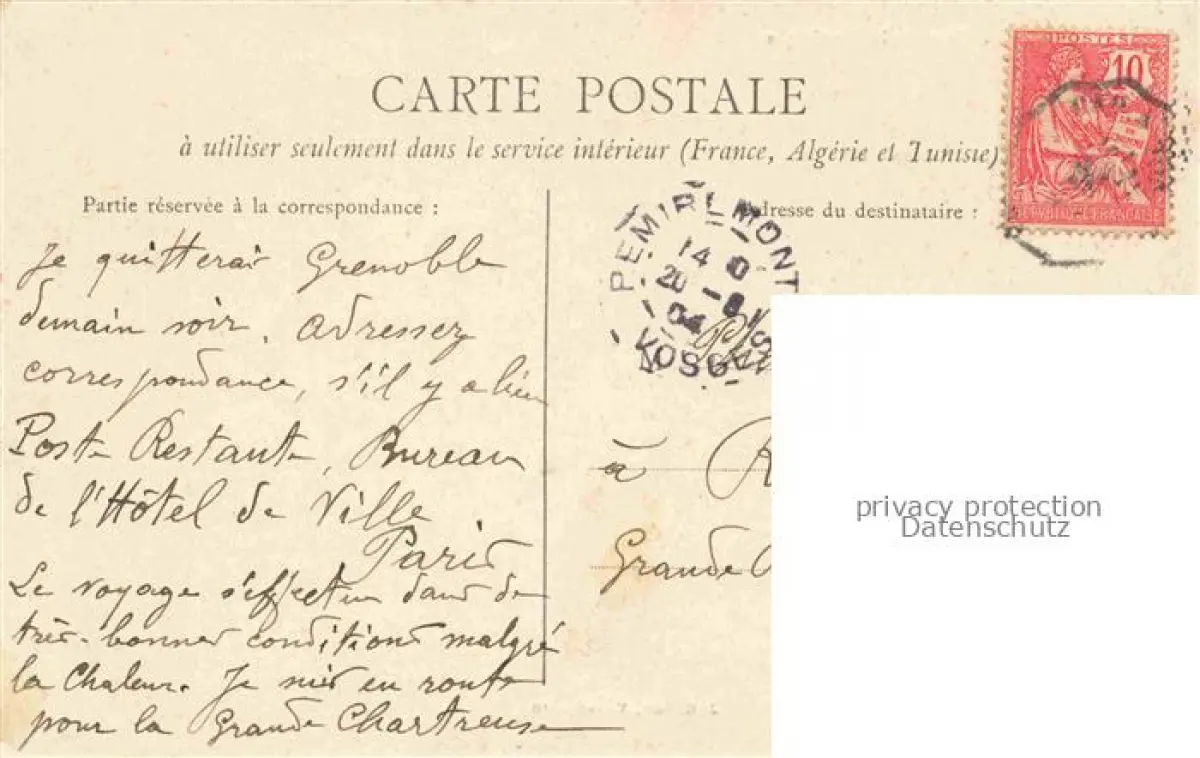 CARTE POSTALE
à utiliser seulement dans le service intérieur (France, Algérie et Tunisie)
Partie réservée à la correspondance :
Adresse du destinataire :
POSTES
10
REPUBLIQUE FRANÇAISE
REMIREMONT
14
20 - 8
04
VOSGES
Je quitterai Grenoble
demain soir. Adressez
correspondance, s'il y a lieu
Poste Restante, Bureau
de l'Hôtel de Ville
Paris
Le voyage s'effectue dans de
très-bonnes conditions malgré
la Chaleur. Je suis en route
pour la Grande Chartreuse
à R
Grande
privacy protection
Datenschutz